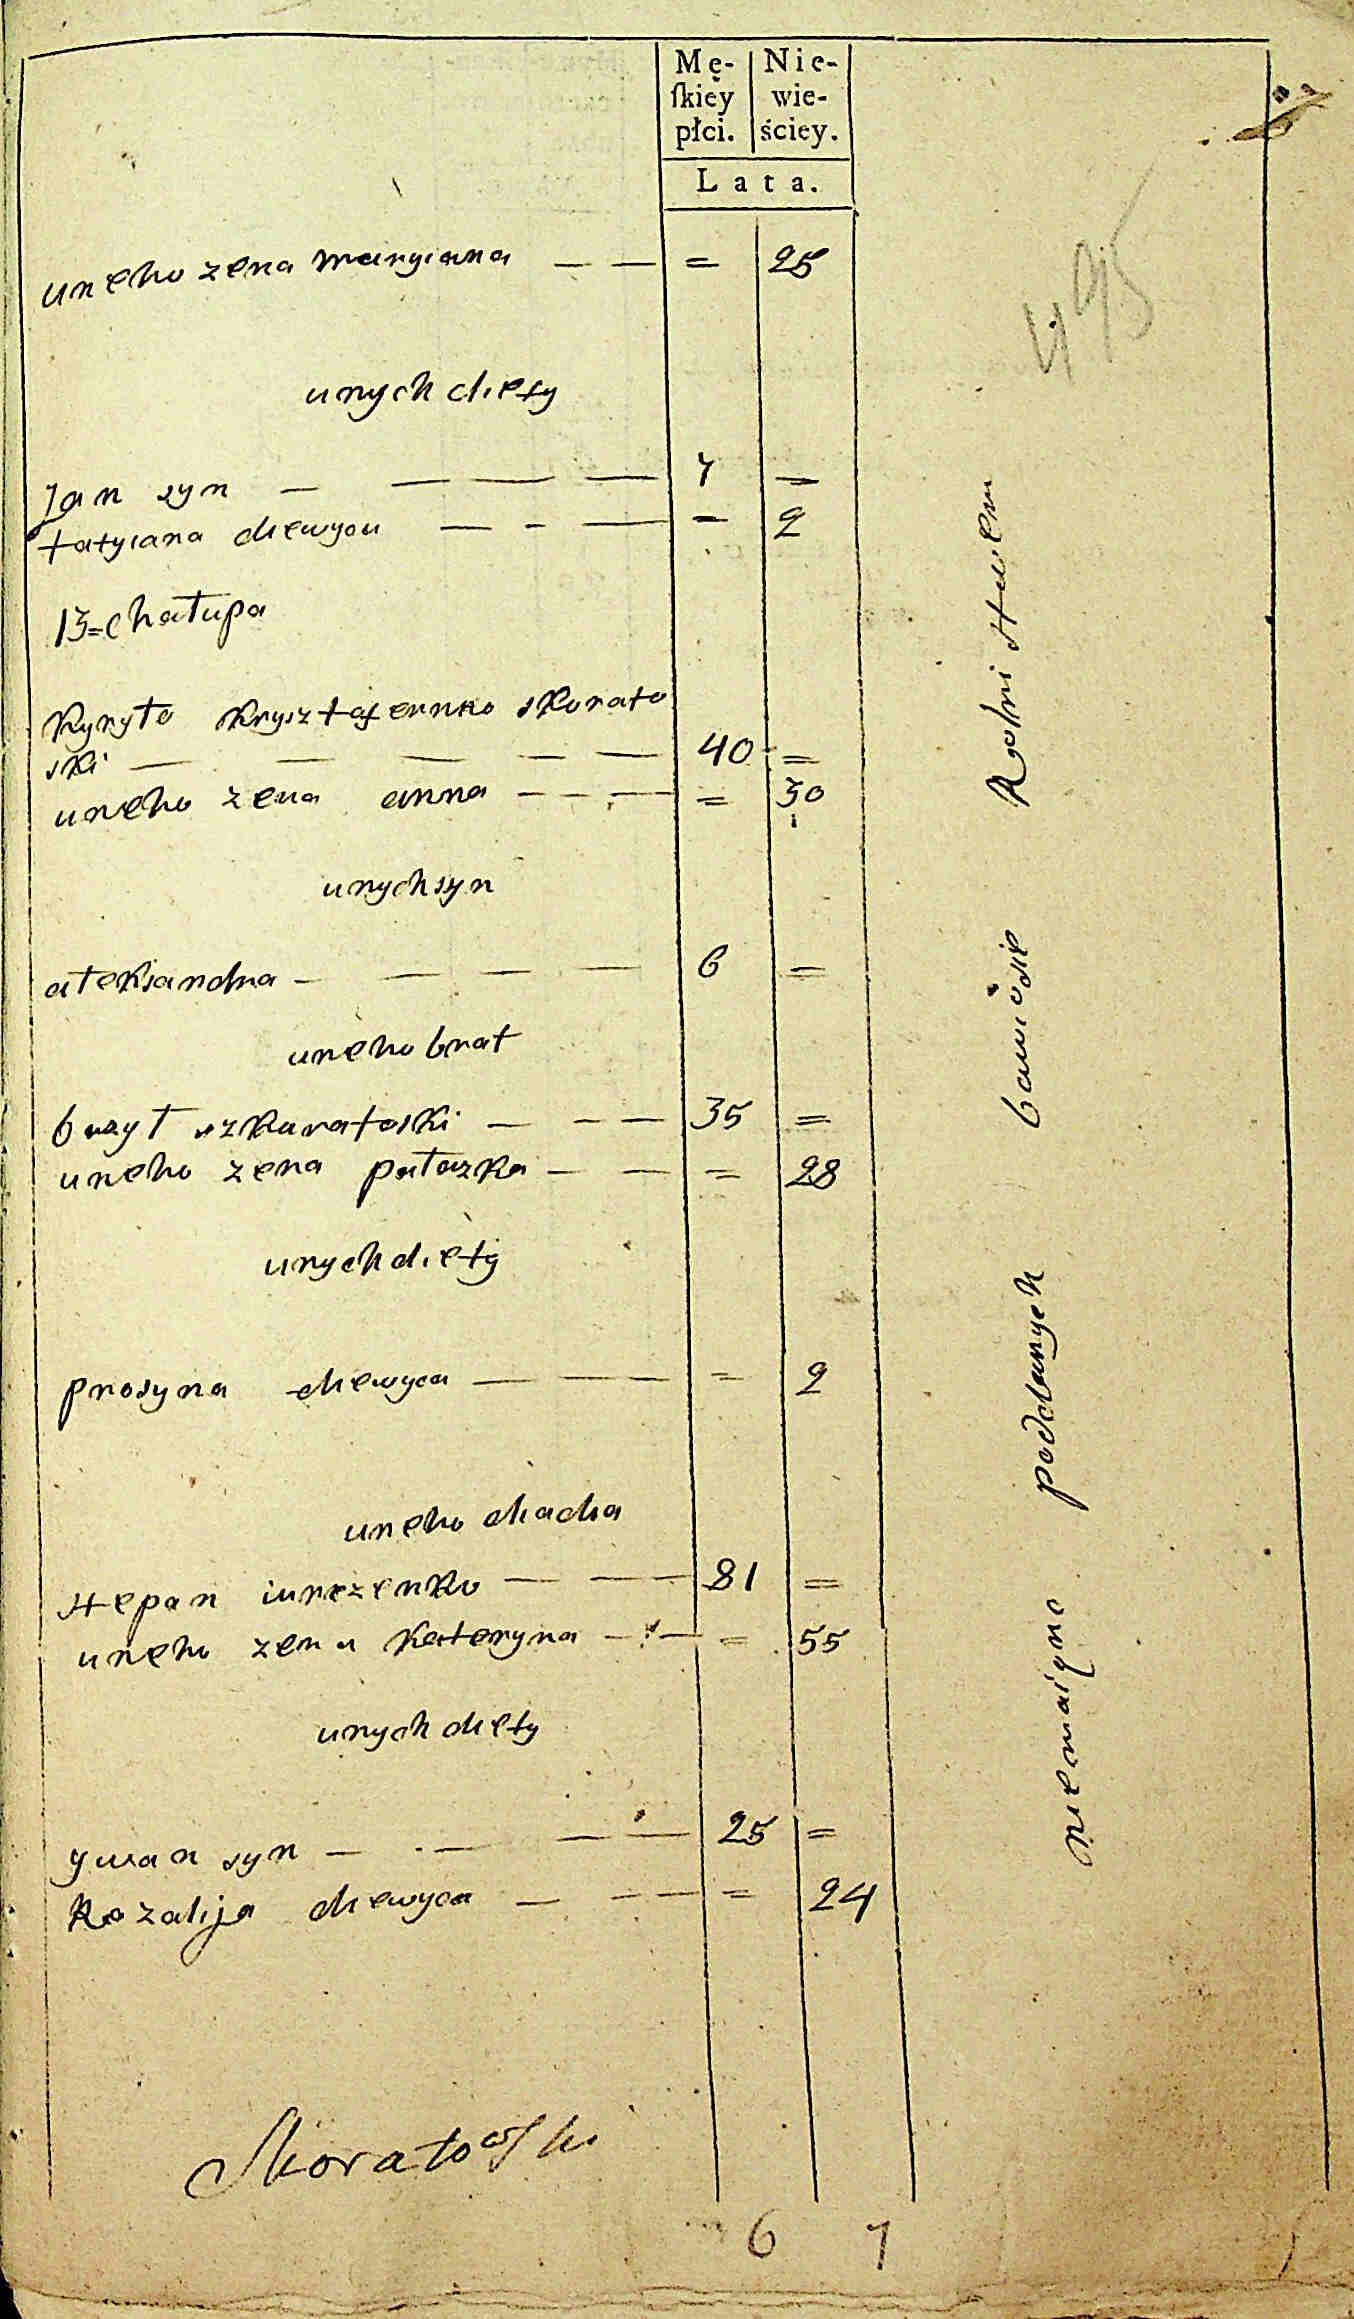 Mę-
ſkiey
płci.
Nie-
wie-
ściey.
Lata.
495
uneho zena maryiana — — = 25
unych diety
Jan syn — — — — — 7 =
tatyiana diewycu — - — = 2
13=chałupa
Kyryło Krysztafennko skorato
ski — — — — — 40 =
uneho zena anna — — — = 30
unych syn
ałeksandra — — — — 6 =
uneho brat
szkuratoski — — — 35 =
uneho zena pałazka — — = 28
unych diety
prosyna diewyca — — — = 2
uneho diadia
stepan iurezenko — — 81 =
uneho zena Kateryna — — = 55
unych diety
ywan syn — — — — 25 =
Rozalija diewyca — — — = 24
niemaiąnc poddanych bawiosie
Skoratoski
6 7